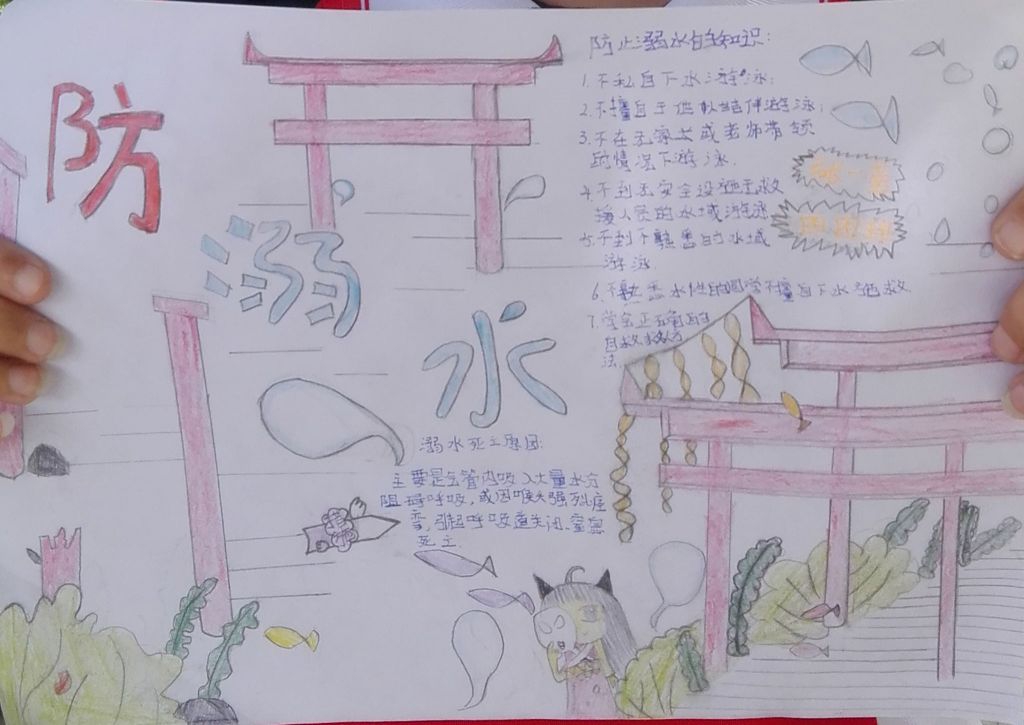 防
溺
水
防止溺水自我知识:
1.不私自下水游泳;
2.不擅自于他人结伴游泳;
3.不在无家长或老师带领
的情况下游泳.
4.不到无安全设施无救
援人员的水域游泳
5.不到不熟悉的水域
游泳.
6.不熟悉水性的同学不擅自下水施救.
7.学会正确的
自救方
法.
溺水死亡原因:
主要是气管内吸入大量水分
阻碍呼吸,或因喉头强烈痉
挛,引起呼吸道关闭、窒息
死亡